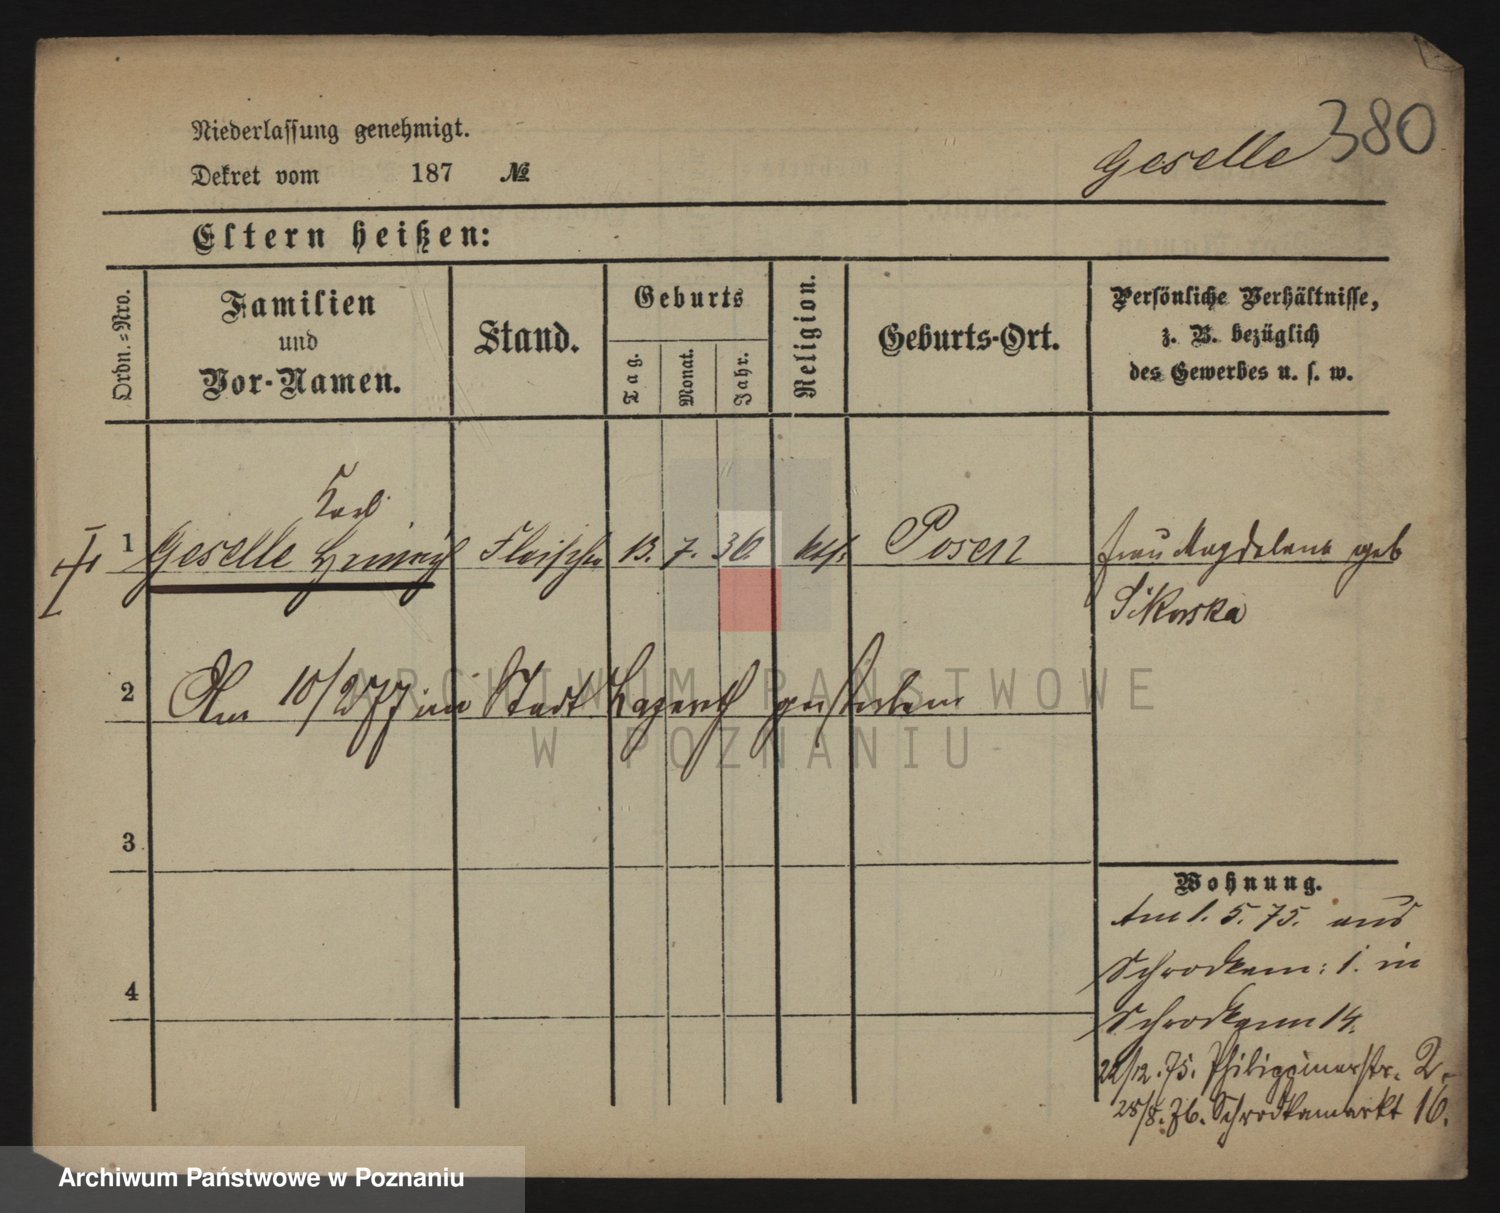 Niederlassung genehmigt.
Geselle 380
Dekret vom 187 №
Eltern heißen:
Ordn.=Nro.
Familien
und
Vor-Namen.
Stand.
Geburts
Tag.
Monat.
Jahr.
Religion.
Geburts-Ort.
Persönliche Verhältnisse,
z. B. bezüglich
des Gewerbes u. s. w.
Karl
1 Geselle Heinrich Fleischer 13. 7. 36. kth. Posen Frau Magdalena geb
Sikorska
2 Am 10/2 77 im Stadt Lazareth gestorben
3
4
Wohnung.
Am 1. 5. 75. aus
Schrodkam: 1. in
Schrodkam 14.
22/12. 75. Philippinerstr. 2.
28/8. 76. Schrodkamarkt 16.
ARCHIWUM PAŃSTWOWE
W POZNANIU
Archiwum Państwowe w Poznaniu